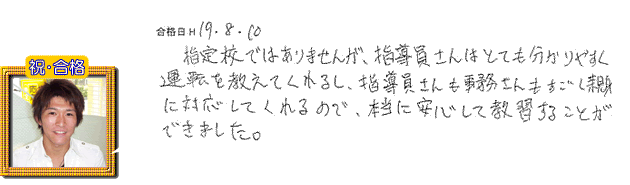 合格日 H 19.8.10
指定校ではありませんが、指導員さんはとても分かりやすく
運転を教えてくれるし、指導員さんも事務さんもすごく親身
に対応してくれるので、本当に安心して教習することが
できました。
祝・合格